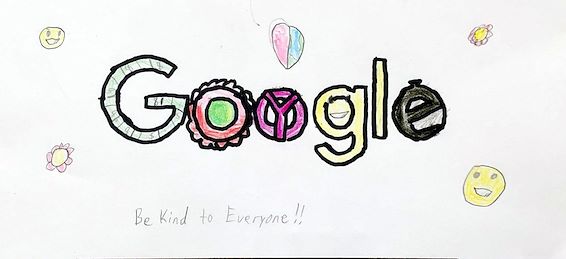 Google
Be Kind to Everyone!!